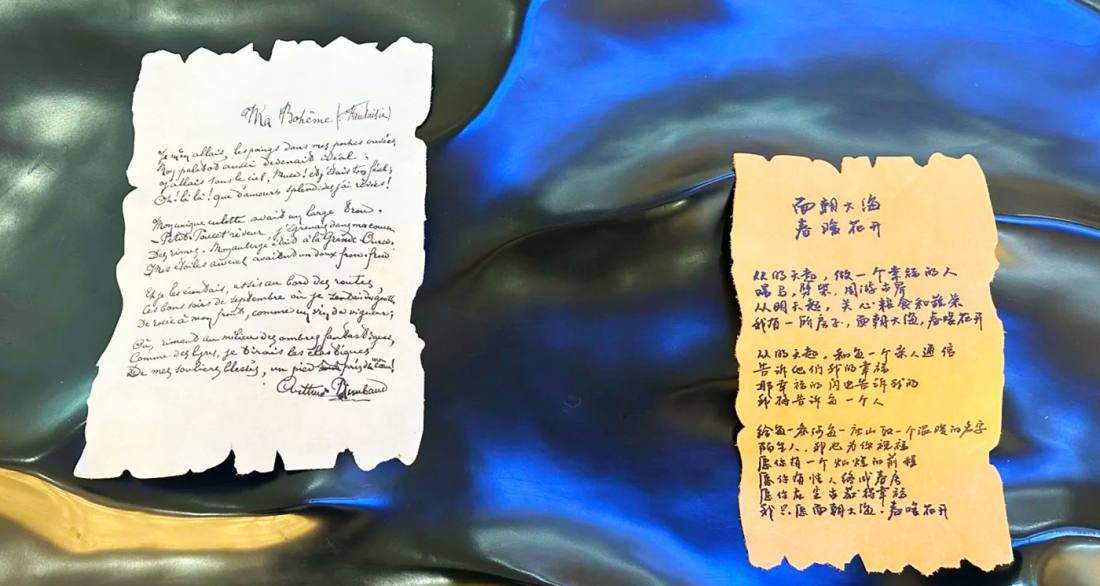 Ma Bohême (Fantaisie)
Je m'en allais, les poings dans mes poches crevées
Mon paletot aussi devenait idéal ;
J'allais sous le ciel, Muse ! et j'étais ton féal ;
Oh ! là là ! que d'amours splendides j'ai rêvées !
Mon unique culotte avait un large trou.
- Petit-Poucet rêveur, j'égrenais dans ma course
Des rimes. Mon auberge était à la Grande Ourse.
- Mes étoiles au ciel avaient un doux frou-frou
Et je les écoutais, assis au bord des routes,
Ces bons soirs de septembre où je sentais des gouttes
De rosée à mon front, comme un vin de vigueur ;
Où, rimant au milieu des ombres fantastiques,
Comme des lyres, je tirais les élastiques
De mes souliers blessés, un pied près de mon
Arthur Rimbaud
面朝大海
春暖花开
从明天起，做一个幸福的人
喂马，劈柴，周游世界
从明天起，关心粮食和蔬菜
我有一所房子，面朝大海，春暖花开
从明天起，和每一个亲人通信
告诉他们我的幸福
那幸福的闪电告诉我的
我将告诉每一个人
给每一条河每一座山取一个温暖的名字
陌生人，我也为你祝福
愿你有一个灿烂的前程
愿你有情人终成眷属
愿你在尘世获得幸福
我只愿面朝大海，春暖花开